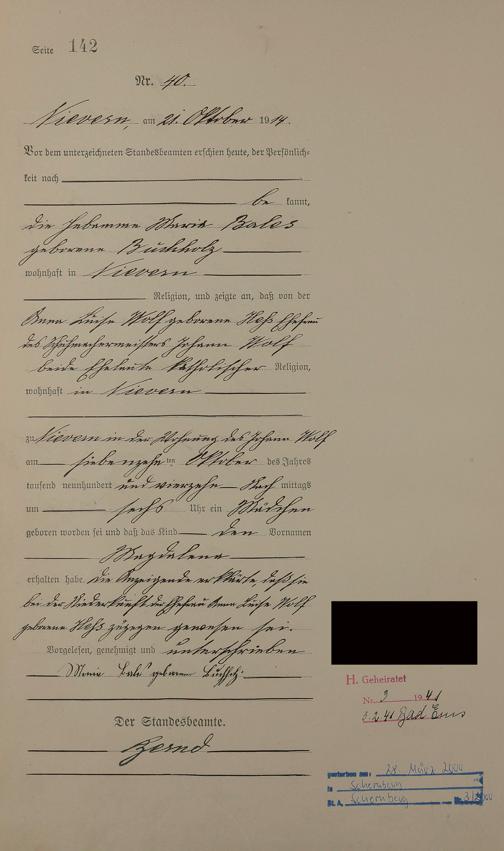 Seite 142
Nr. 40.
Nievern, am 21. Oktober 1914.
Vor dem unterzeichneten Standesbeamten erschien heute, der Persönlich-
keit nach
be kannt,
die Hebamme Maria Bales
geborene Buchholz
wohnhaft in Nievern
Religion, und zeigte an, daß von der
Anna Luise Wolf geborene Heß Ehefrau
des Schuhmachermeisters Johann Wolf
beide Eheleute katholischer Religion,
wohnhaft in Nievern
zu Nievern in der Wohnung des Johann Wolf
am siebenzehn ten Oktober des Jahres
tausend neunhundert und vierzehn Nach mittags
um sechs Uhr ein Mädchen
geboren worden sei und daß das Kind den Vornamen
Magdalena
erhalten habe. Die Anzeigende erklärte daß sie
bei der Niederkunft der Ehefrau Anna Luise Wolf
geborene Heß zugegen gewesen sei.
Vorgelesen, genehmigt und unterschrieben
Maria Bales geborene Buchholz.
Der Standesbeamte.
H. Geheiratet
Nr. 3 1941
3.2.41 Bad Ems
gestorben am: 28. März 2000
in
St. A. Nr.